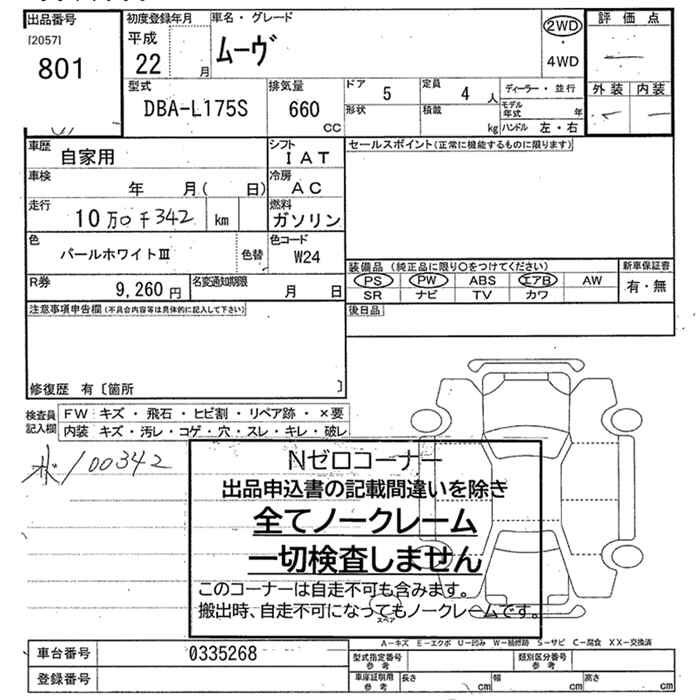 出品番号
[2057]
801
初度登録年月
平成
22 月
車名・グレード
ムーヴ
2WD
・
4WD
評価点
外装 内装
型式
DBA-L175S
排気量
660
CC
ドア 5
定員 4 人
形状
積載 kg
ディーラー・並行
モデル年式 年
ハンドル 左・右
車歴 自家用
シフト
IAT
セールスポイント(正常に機能するものに限ります)
車検 年 月( 日)
冷房
AC
走行 10万0千342 km
燃料
ガソリン
色 パールホワイトⅢ 色替
色コード
W24
R券 9,260 円
名変通知期限 月 日
装備品 (純正品に限り○をつけてください)
新車保証書
PS PW ABS エアB AW
有・無
SR ナビ TV カワ
後日品
注意事項申告欄(不具合内容等は具体的に記入して下さい)
修復歴 有〔箇所 〕
検査員記入欄
FW キズ・飛石・ヒビ割・リペア跡・×要
内装 キズ・汚レ・コゲ・穴・スレ・キレ・破レ
100342
Nゼロコーナー
出品申込書の記載間違いを除き
全てノークレーム
一切検査しません
このコーナーは自走不可も含みます。
搬出時、自走不可になってもノークレームです。
スペア
A-キズ E-エクボ U-凹み W-補修跡 S-サビ C-腐食 XX-交換済
車台番号 0335268
型式指定番号参考
類別区分番号参考
登録番号
車庫証明用参考 長さ cm 幅 cm 高さ cm